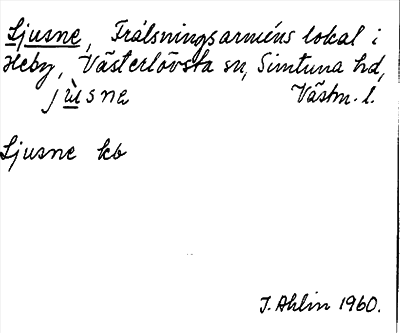 Ljusne, Frälsningsarméns lokal i
Heby, Västerlövsta sn, Simtuna hd,
jùsna Västm. l.
Ljusne kb
J. Ahlin 1960.